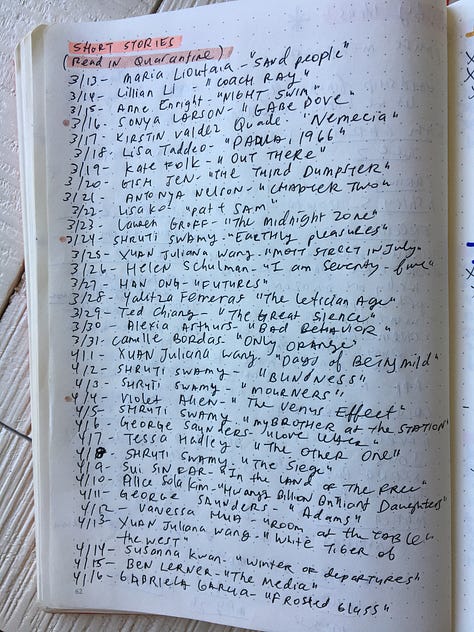 SHORT STORIES
(Read in Quarantine)
3/13- Maria Lioutaia - "Sand people"
3/14- Lillian Li - "COACH RAY"
3/15- Anne Enright - "NIGHT SWIM"
3/16- SONYA LARSON - "GABE DOVE"
3/17- KIRSTIN Valdez Quade - "Nemecia"
3/18- Lisa Taddeo - "PADUA, 1966"
3/19- Kate Folk - "OUT THERE"
3/20- GISH JEN - "The Third Dumpster"
3/21- ANTONYA NELSON - "CHAPTER TWO"
3/22- Lisa Ko - "Pat + SAM"
3/23- Lauren GROFF - "The Midnight Zone"
3/24- SHRUTI SWAMY - "EARTHLY pleasures"
3/25- XUAN JULIANA Wang - "MOTT STREET IN July"
3/26- HELEN Schulman - "I am seventy-five"
3/27- HAN ONG - "FUTURES"
3/28- Yalitza Ferreras "The Letician Age"
3/29- Ted Chiang - "The Great Silence"
3/30- Alexia Arthurs - "BAD BEHAVIOR"
3/31- Camille BORDAS "ONLY ORANGE"
4/1- XUAN Juliana Wang. "Days of BEING mild"
4/2- SHRUTI SWAMY - "BLINDNESS"
4/3- SHRUTI SWAMY - "MOURNERS"
4/4- Violet Allen - "The Venus Effect"
4/5- SHRUTI SWAMY - "MY BROTHER at the STATION"
4/6- GEORGE Saunders -
4/7- Tessa Hadley - "The Other One"
4/8- SHRUTI SWAMY - "The Siege"
4/9- SUI SIN FAR - "IN the LAND of The FREE"
4/10- Alice Sola Kim - "Hwang's Billion Brilliant Daughters"
4/11- GEORGE Saunders - "Adams"
4/12- Vanessa HUA - "ROOM at the TABLE"
4/13- XUAN Juliana Wang - "White TIGER of
the west"
4/14- Susanna Kwan - "Winter of departures"
4/15- BEN LERNER - "The Media"
4/16- GABRIELA GARCIA - "FROSTED GLASS"
62